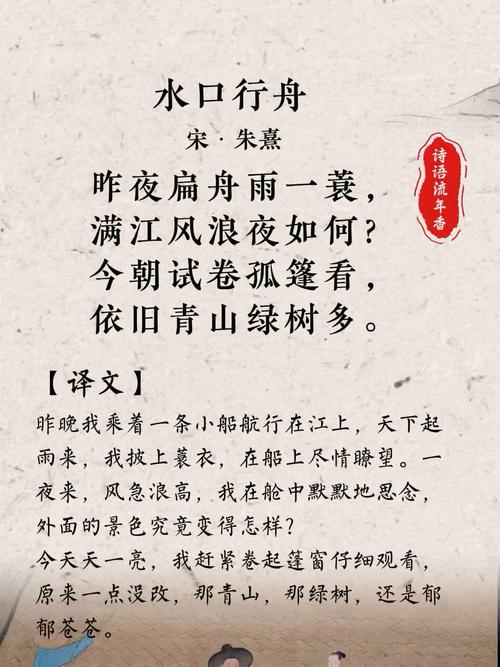 水口行舟
宋·朱熹
昨夜扁舟雨一蓑，
满江风浪夜如何？
今朝试卷孤篷看，
依旧青山绿树多。
诗语流年香
【译文】
昨晚我乘着一条小船航行在江上，天下起
雨来，我披上蓑衣，在船上尽情瞭望。一
夜来，风急浪高，我在舱中默默地思念，
外面的景色究竟变得怎样？
今天天一亮，我赶紧卷起篷窗仔细观看，
原来一点没改，那青山，那绿树，还是郁
郁苍苍。